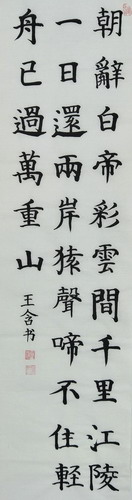 朝辭白帝彩雲間千里江陵
一日還兩岸猿聲啼不住輕
舟已過萬重山
王含书